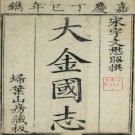 嘉慶丁巳年鐫
宋宇文懋昭撰
大金國志
掃葉山房藏板